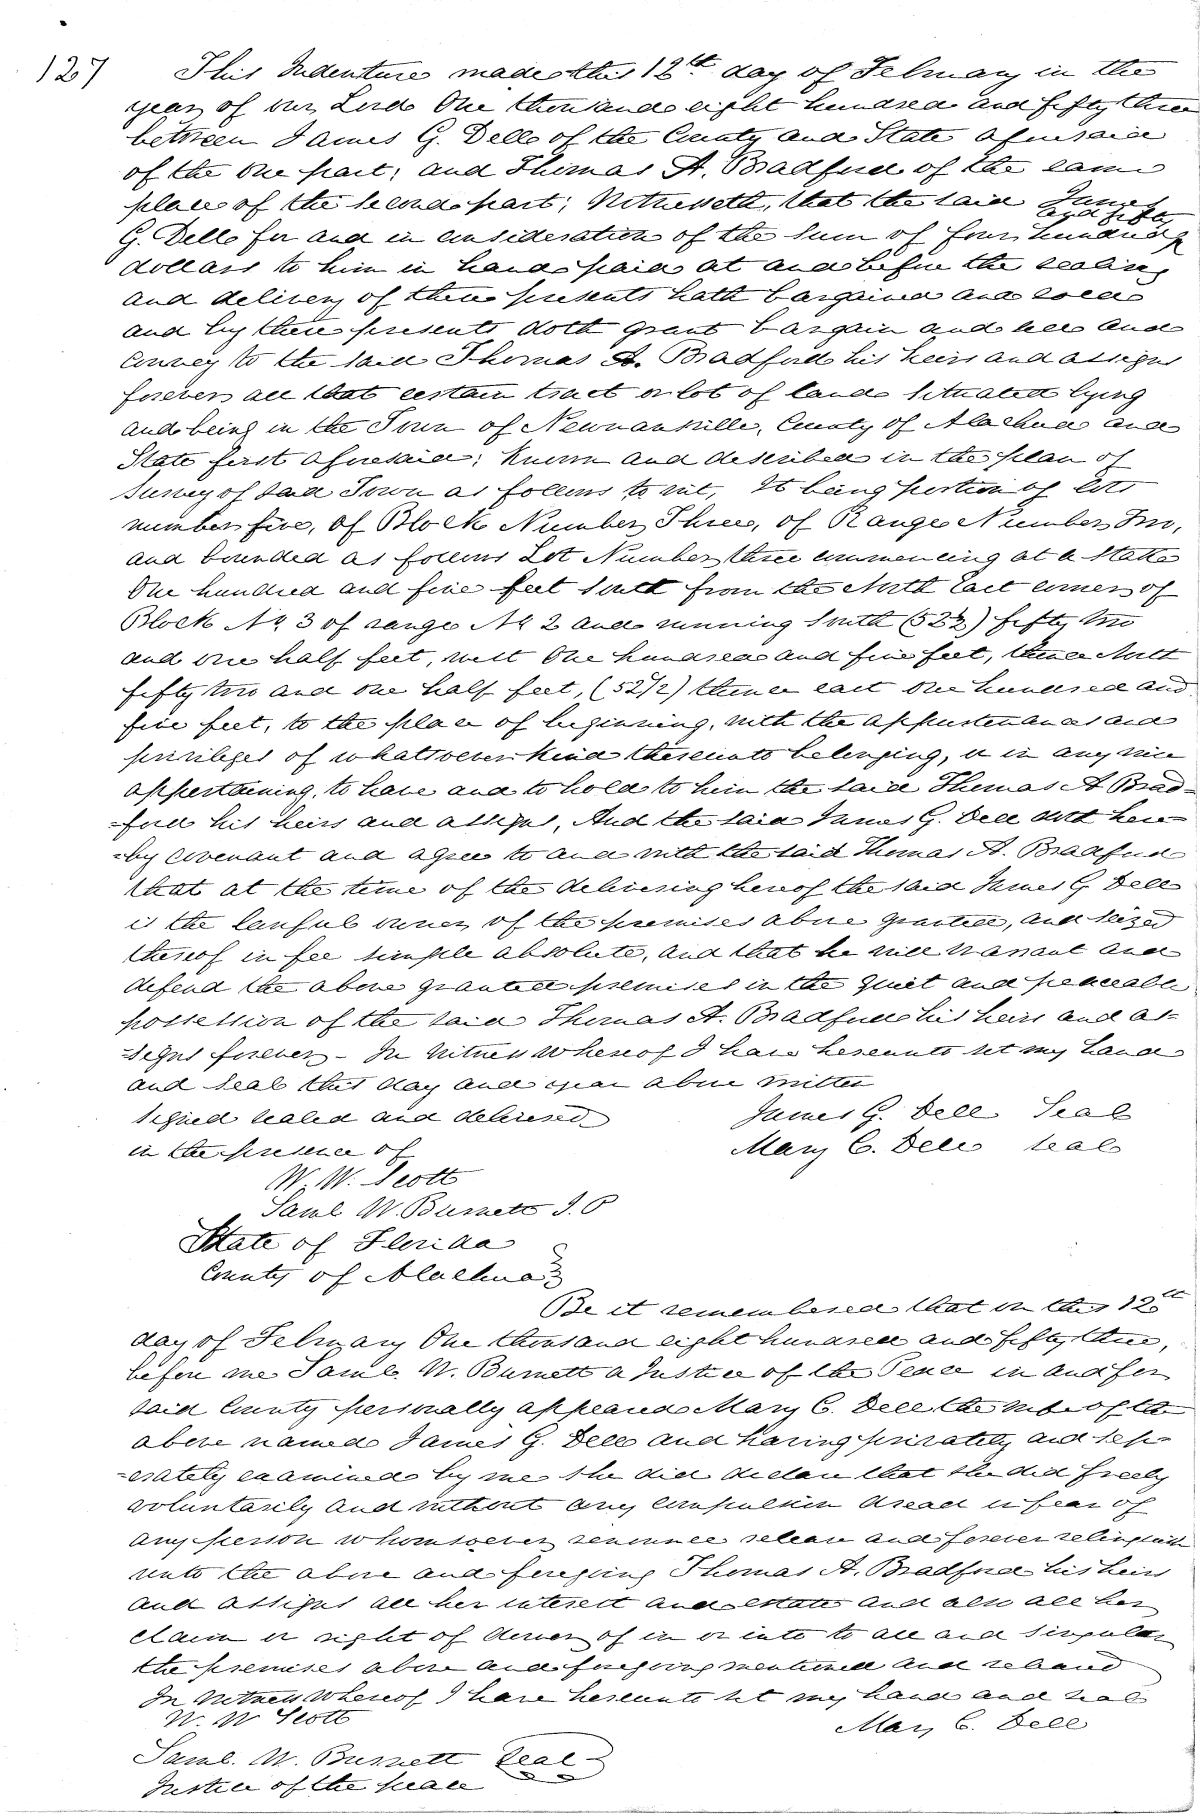 127 This Indenture made this 12th day of February in the
year of our Lord One thousand eight hundred and fifty three
between James G. Dell of the County and State aforesaid
of the One part; and Thomas A. Bradford of the same
place of the second part; Witnesseth, that the said James
and fifty
G. Dell for and in consideration of the sum of four hundred
dollars to him in hand paid at and before the sealing
and delivery of these presents hath bargained and sold
and by these presents doth grant bargain and sell and
convey to the said Thomas A. Bradford his heirs and assigns
forever all that certain tract or lot of land situated lying
and being in the Town of Newnansville, County of Alachua and
State first aforesaid; Known and described in the plan of
survey of said Town as follows to wit, It being portion of lots
number five, of Block Number Three, of Range Number Two,
and bounded as follows Lot Number three commencing at a stake
One hundred and five feet South from the North East corner of
Block No 3 of range No 2 and running South (52½) fifty two
and one half feet, west One hundred and five feet, thence North
fifty two and one half feet, (52½) thence east one hundred and
five feet, to the place of beginning, with the appurtenances and
privileges of whatsoever kind thereunto belonging, or in any wise
appertaining, to have and to hold to him the said Thomas A Brad=
=ford his heirs and assigns, And the said James G. Dell doth here=
=by covenant and agree to and with the said Thomas A. Bradford
that at the time of the delivering hereof the said James G Dell
is the lawful owner of the premises above granted, and seized
thereof in fee simple absolute, and that he will warrant and
defend the above granted premises in the quiet and peaceable
possession of the said Thomas A. Bradford his heirs and as=
=signs forever - In Witness Whereof I have hereunto set my hand
and seal this day and year above written
signed sealed and delivered James G. Dell Seal
in the presence of Mary C. Dell seal
W. W. Scott
Saml W. Burnett J. P
State of Florida
County of Alachua
Be it remembered that on this 12th
day of February One thousand eight hundred and fifty three,
before me Saml. W. Burnett a Justice of the Peace in and for
said County personally appeared Mary C. Dell the wife of the
above named James G. Dell and having privately and sep=
=erately examined by me she did declare that she did freely
voluntarily and without any compulsion dread or fear of
any person whomsoever renounce release and forever relinquish
unto the above and foregoing Thomas A. Bradford his heirs
and assigns all her interest and estate and also all her
claim or right of dower of in or into to all and singular
the premises above and foregoing mentioned and released
In Witness Whereof I have hereunto set my hand and seal
W. W Scott
Mary C. Dell
Saml. W. Burnett Seal
Justice of the peace